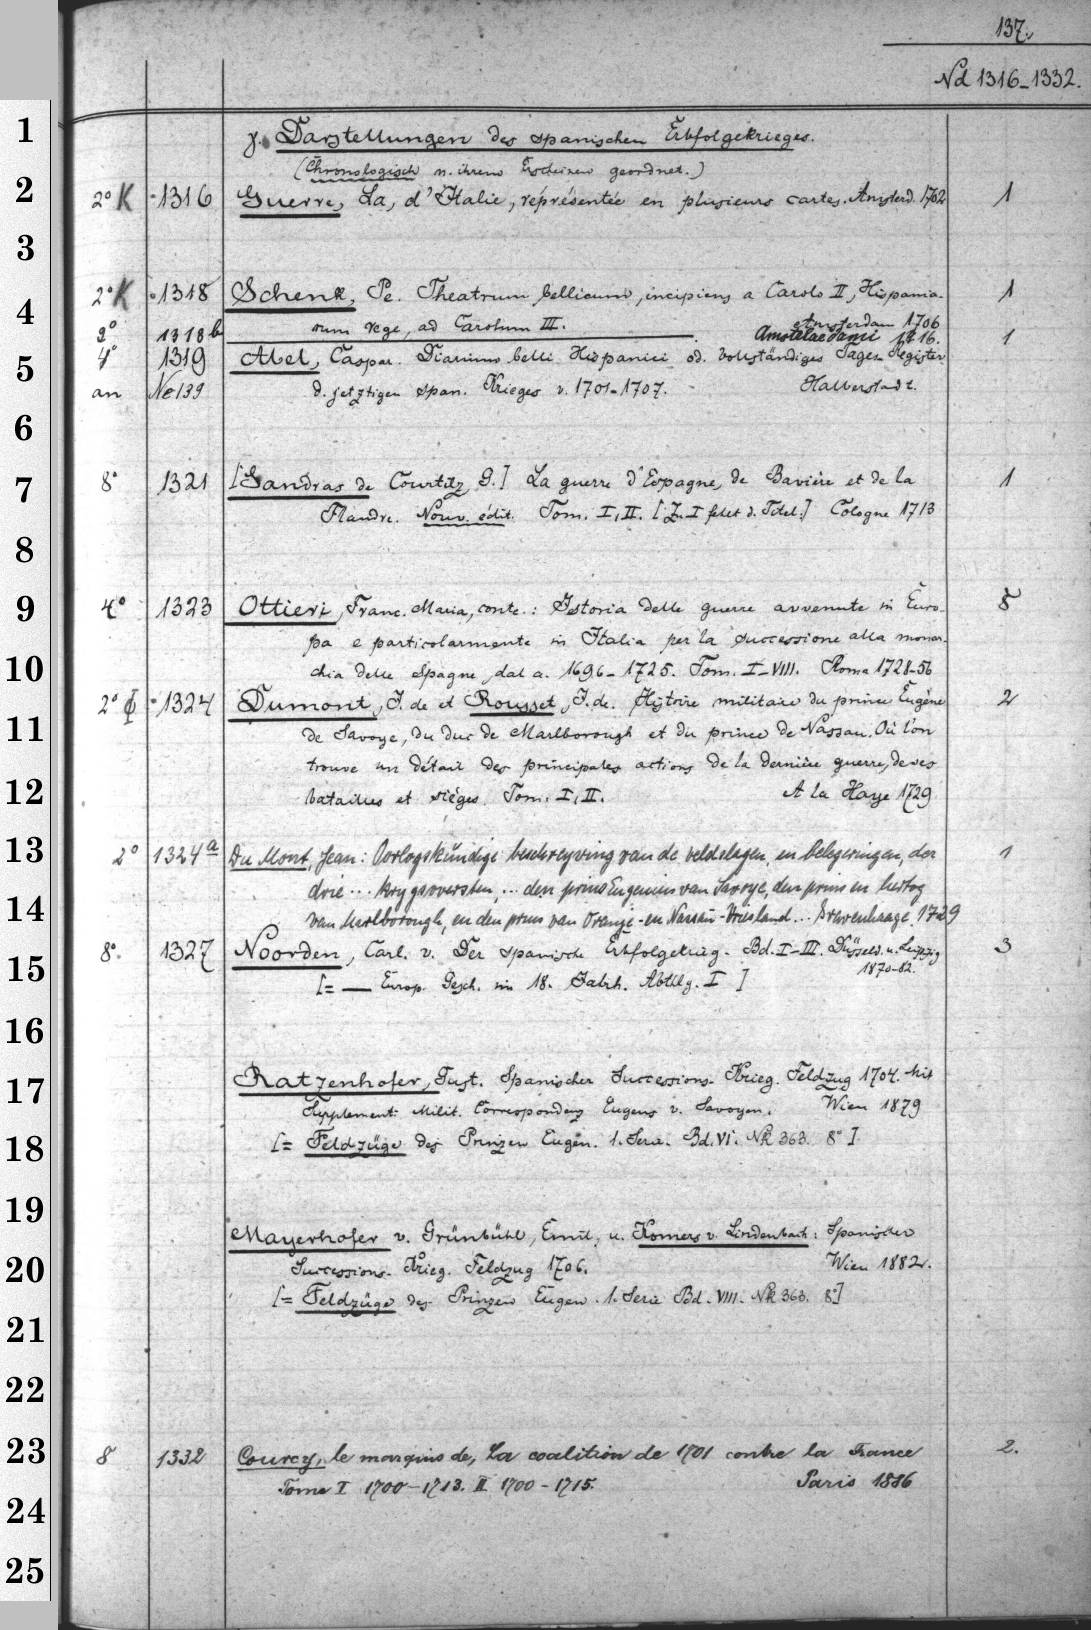 137.
Nd 1316-1332.
1
γ. Darstellungen des spanischen Erbfolgekrieges.
(Chronologisch n. ihrem Erscheinen geordnet.)
2
2° K 1316 Guerre, La, d'Italie, répréséntée en plusieurs cartes. Amsterd. 1702 1
3
2° K 1318 Schenk, Pe. Theatrum bellicum, incipiens a Carolo II, Hispania- 1
4
rum rege, ad Carolum III. Amsterdam 1706
2° 1318b ———. Amstelaedami 1716. 1
4° 1319 Abel, Caspar. Diarium belli Hispanici od. vollständiges Tage-Register
5
an Ne 139 d. jetztigen span. Krieges v. 1701-1707. Halberstadt.
6
7
8° 1321 [Sandras de Courtilz, G.] La guerre d'Espagne, de Bavière et de la 1
Flandre. Nouv. édit. Tom. I, II. [Z. I fehlt d. Titel.] Cologne 1713
8
9
4° 1323 Ottieri, Franc. Maria, conte.: Istoria delle guerre avvenute in Euro- 8
pa e particolarmente in Italia per la successione alla monar-
10
chia delle Spagne, dal a. 1696-1725. Tom. I-VIII. Roma 1728-56
2° 1324 Dumont, J. de et Rousset, J. de. Histoire militaire du prince Eugène 2
11
de Savoye, du duc de Marlborough et du prince de Nassau. Où l'on
trouve un détail des principales actions de la dernière guerre, de ses
12
batailles et sièges. Tom. I, II. A la Haye 1729
13
2° 1324a Du Mont, Jean: Oorlogskundige beschreyving van de veldslagen, en belegeringen, der 1
drie ... krygsoversten, ... den prins Eugenius van Savoye, den prins en hertog
14
van Marlborough, en den prins van Oranje-en Nassau-Vriesland ... Gravenhaage 1729
8°. 1327 Noorden, Carl. v. Der spanische Erbfolgekrieg. Bd. I-III. Düsseld. u. Leipzig 3
15
1870-82.
[= — Europ. Gesch. im 18. Jahrh. Abthlg. I ]
16
17
Ratzenhofer, Gust. Spanischer Successions-Krieg. Feldzug 1704. Mit
Supplement: Milit. Correspondenz Eugens v. Savoyen. Wien 1879
18
[= Feldzüge des Prinzen Eugen. 1. Serie. Bd. VI. Nk 363. 8°]
19
Mayerhofer v. Grünbühl, Emil, u. Komers v. Lindenbach: Spanischer
20
Successions-Krieg. Feldzug 1706. Wien 1882.
[= Feldzüge des Prinzen Eugen. 1. Serie Bd. VIII. Nk 363. 8°]
21
22
23
8 1332 Courcy, le marquis de, La coalition de 1701 contre la France 2.
Tome I 1700-1713. II 1700-1715. Paris 1886
24
25